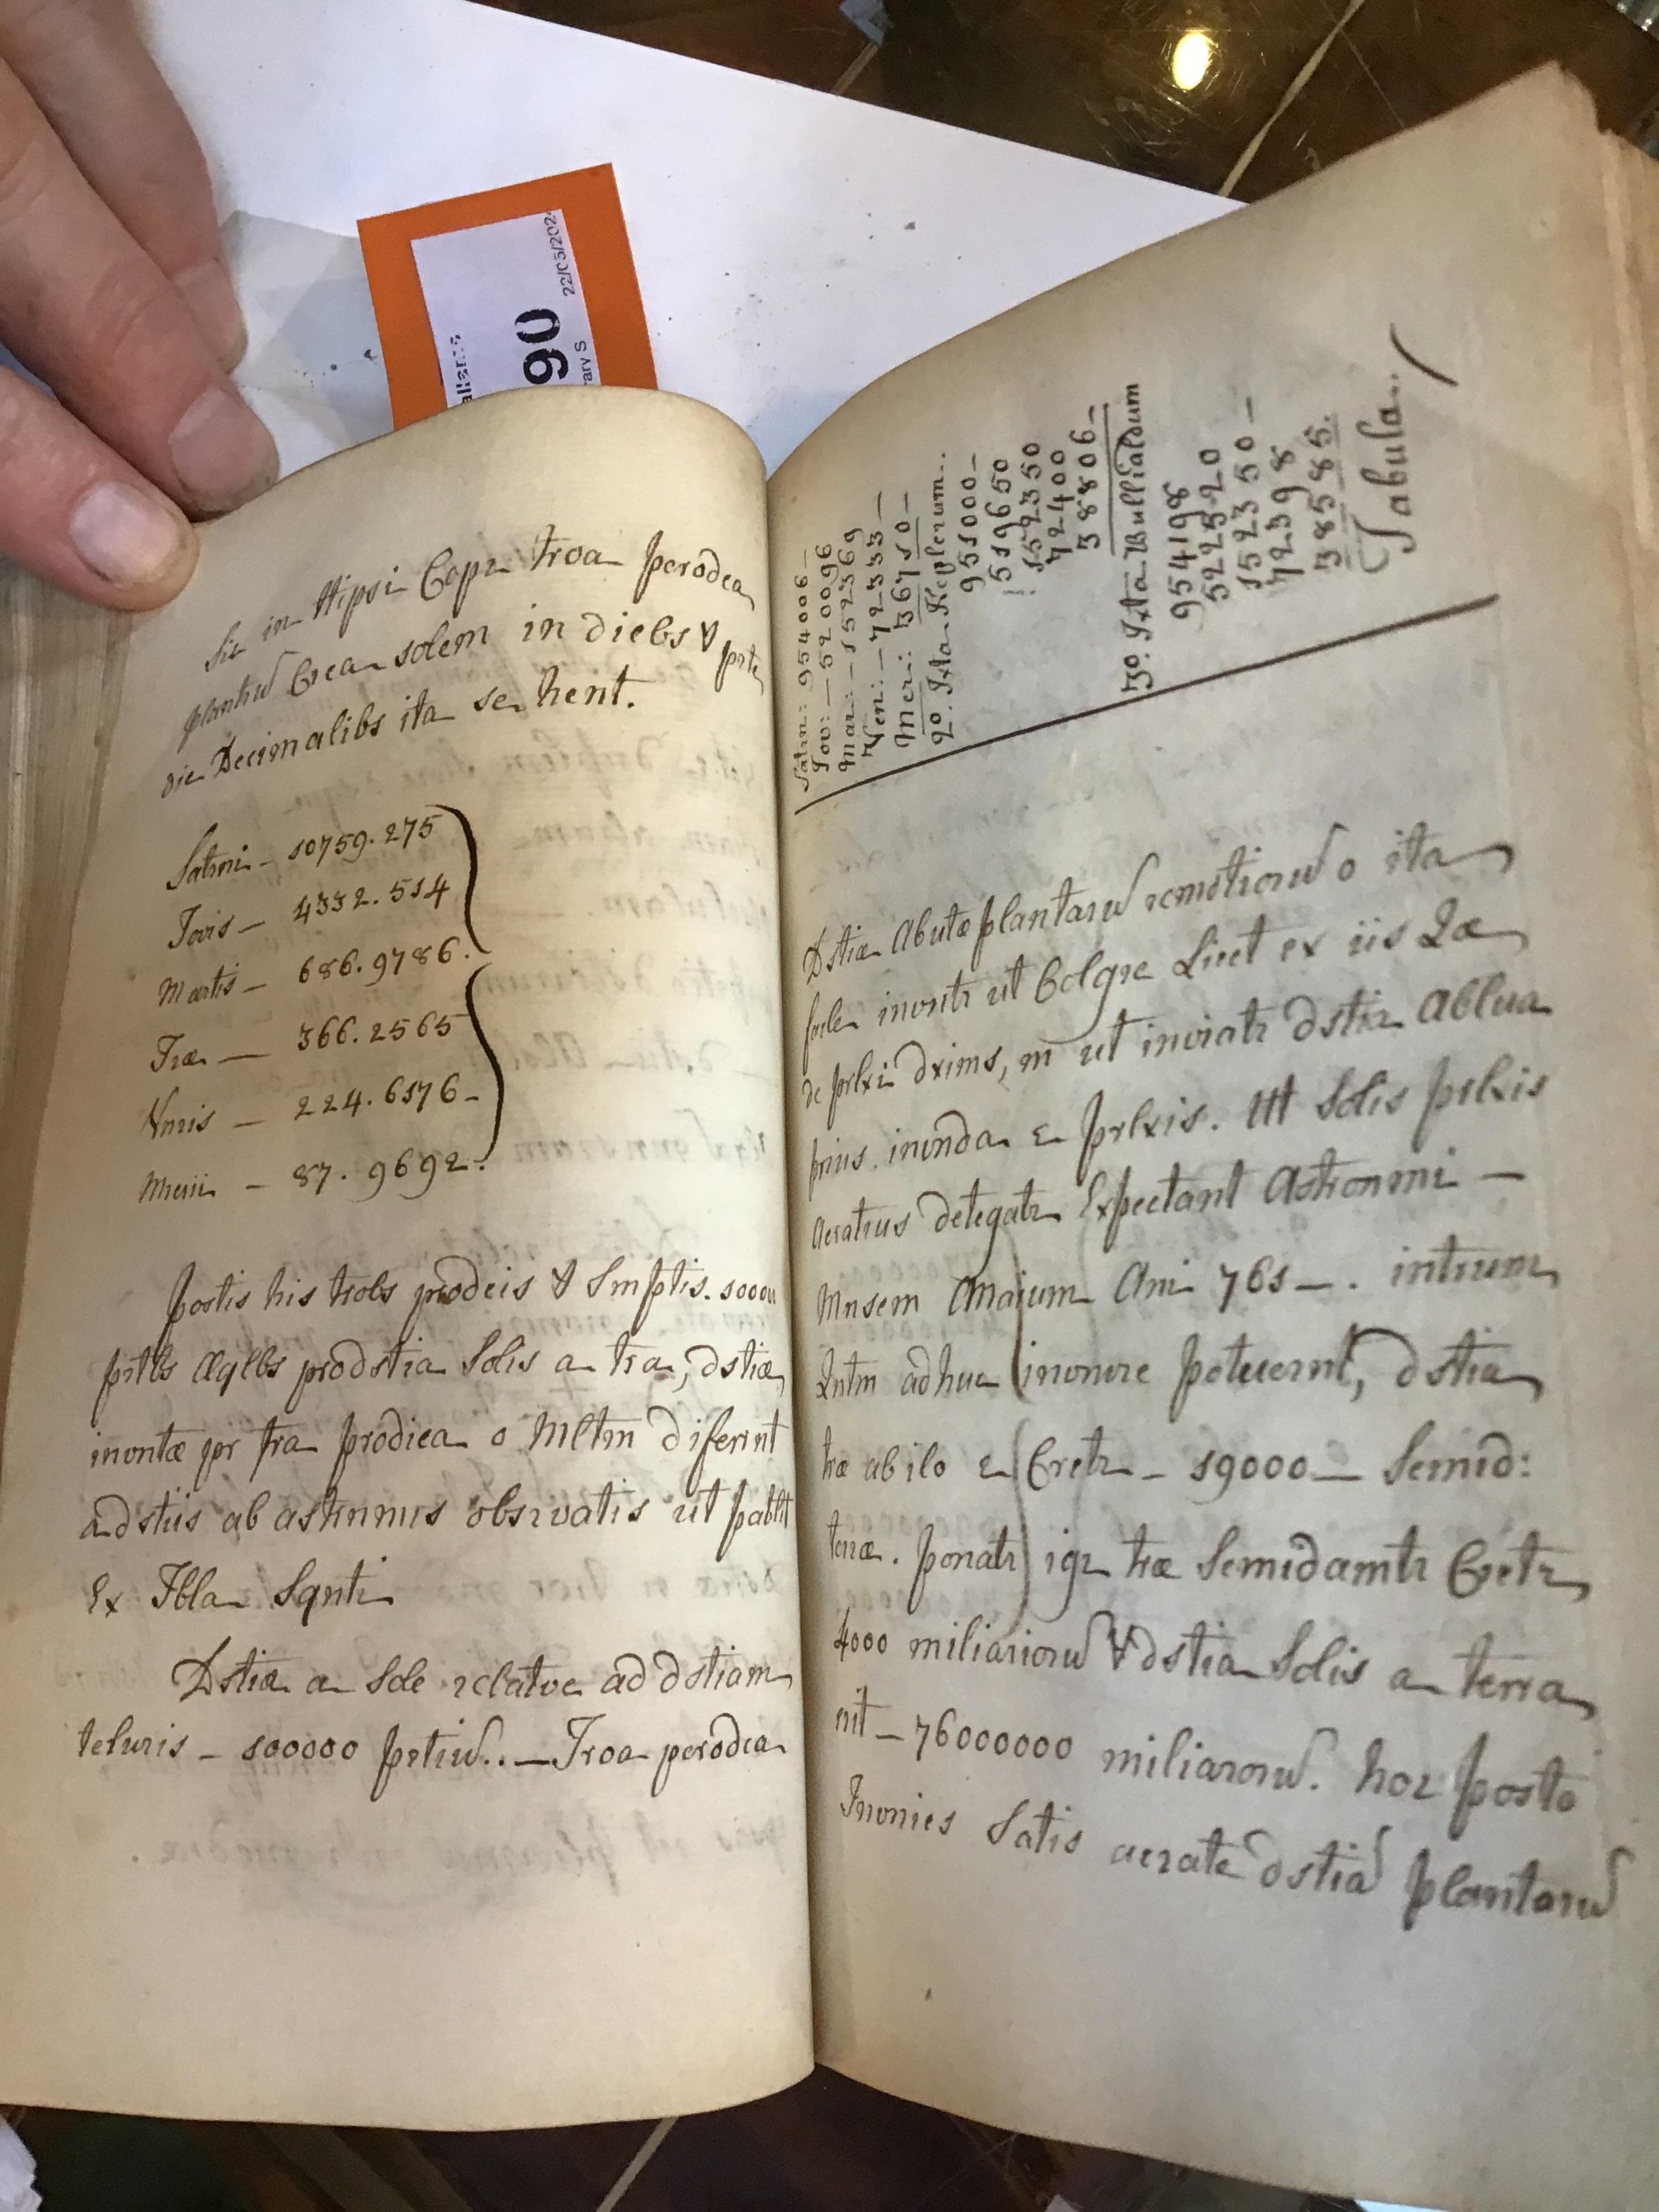 90
22/03/202
rary S
Sic in Hipsi Copr troa perodca
plantrũ Crca solem in diebs & prte
die Decimalibs ita se hent.
Satrni - 10759.275
Jovis - 4332.514
Martis - 686.9786.
Træ - 366.2565
Vnris - 224.6176-
Mrcrii - 87.9692.
Postis his trobs prodcis & Smptis. 10000
prtbs æqlbs prodstia Solis a tra, dstiæ
invntæ ppr tra prodica o Mltm diferint
a dstiis ab astrnmis obsrvatis ut patbt
Ex Tbla Sqnti
Dstiæ a Sole relatve ad dstiam
teluris - 100000 prtiũ.. - Troa perodca
Satrn: 954006-
Jov: - 520096
Mar: - 152369
Ven: - 72333-
Mer: 36710-
2º. Ixta Keplerum..
951000-
519650
152350
72400
38806-
3º. Ixta Bullialdum
954198
522520
152350-
72398
38585.
Tabula.
Dstiæ Abutæ plantarũ remotiorũ o ita
facle invntr ut Colgre Licet ex iis Qæ
de prlxi dxims, m ut inviatr dstia Ablua
prius invnda e prlxis. Ut Solis prlxis
Acratius detegatr Expectant Astronmi -
Mnsem Maium Ani 761-. intrium
Qntm adhuc invnire potuernt, dstia
træ ab ilo e Crctr - 19000 - Semid:
terræ. ponatr igr træ Semidamtr Crctr
4000 miliariorũ & dstia Solis a terra
erit - 76000000 miliarorũ. hoc posto
Invnies Satis acrate dstiã plantarũ